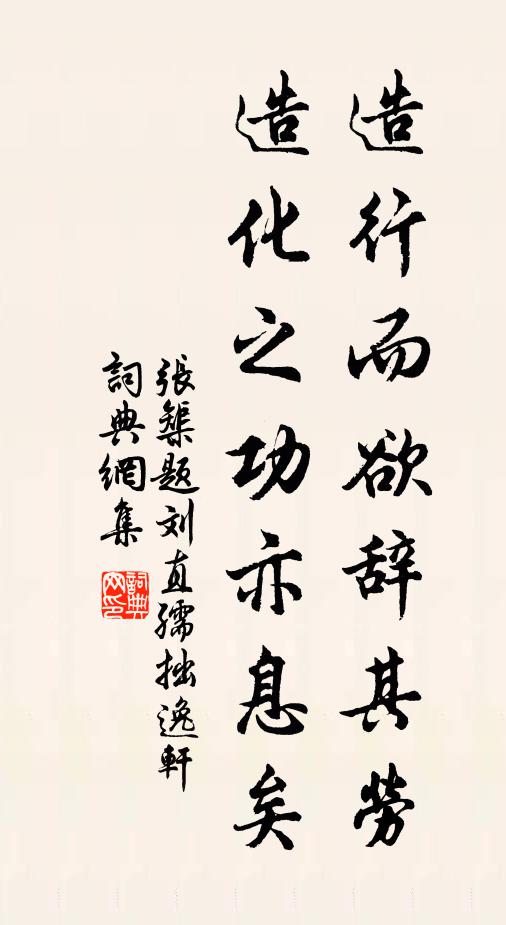 造行而欲辞其勞
造化之功亦息矣
張榘题刘直孺拙逸軒
詞典網集
詞典
网印